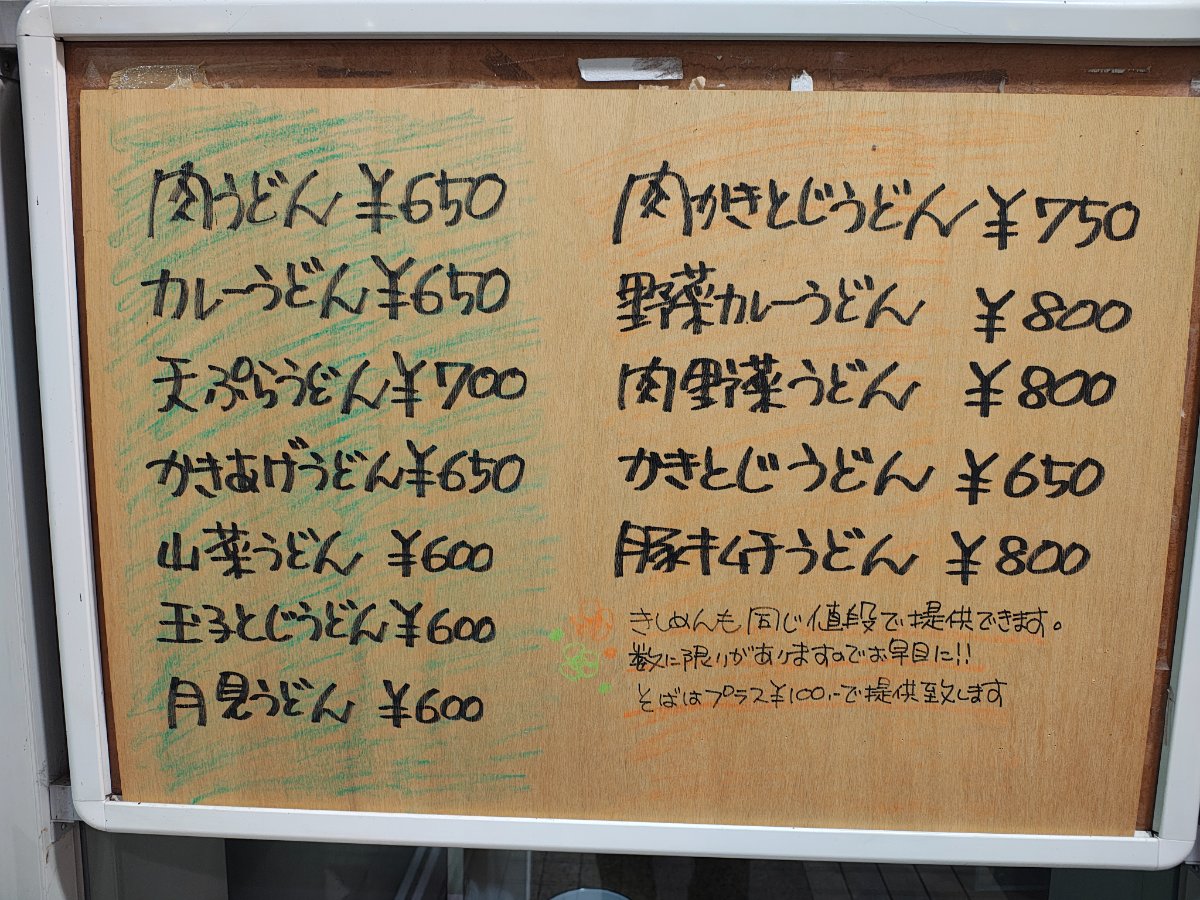 肉うどん ¥650
カレーうどん ¥650
天ぷらうどん ¥700
かきあげうどん ¥650
山菜うどん ¥600
玉子とじうどん ¥600
月見うどん ¥600
肉かきとじうどん ¥750
野菜カレーうどん ¥800
肉野菜うどん ¥800
かきとじうどん ¥650
豚キムチうどん ¥800
きしめんも同じ値段で提供できます。
数に限りがありますのでお早目に!!
そばはプラス¥100.-で提供致します